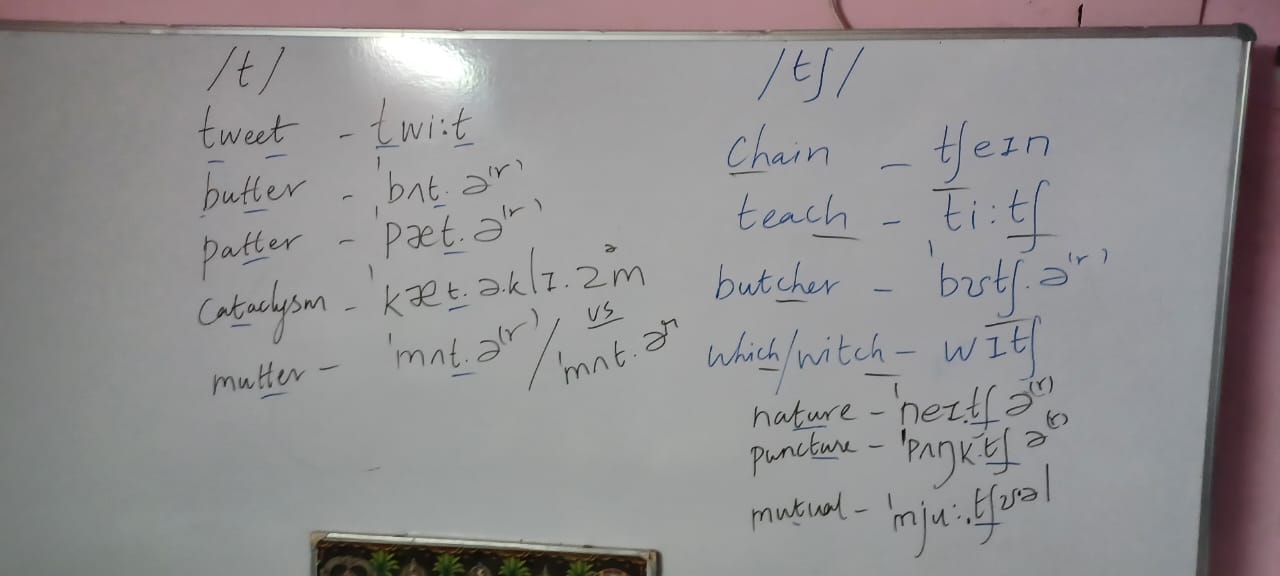 /t/
tweet - twi:t
butter - 'bʌt.ə(r)
patter - 'pæt.ə(r)
cataclysm - 'kæt.ə.klɪ.zᵊm
mutter - 'mʌt.ə(r) / vs 'mʌt.ɚ
/tʃ/
Chain - tʃeɪn
teach - ti:tʃ
butcher - 'bʊtʃ.ə(r)
which/witch - wɪtʃ
nature - 'neɪ.tʃə(r)
puncture - 'pʌŋk.tʃə(r)
mutual - 'mju:.tʃʊəl